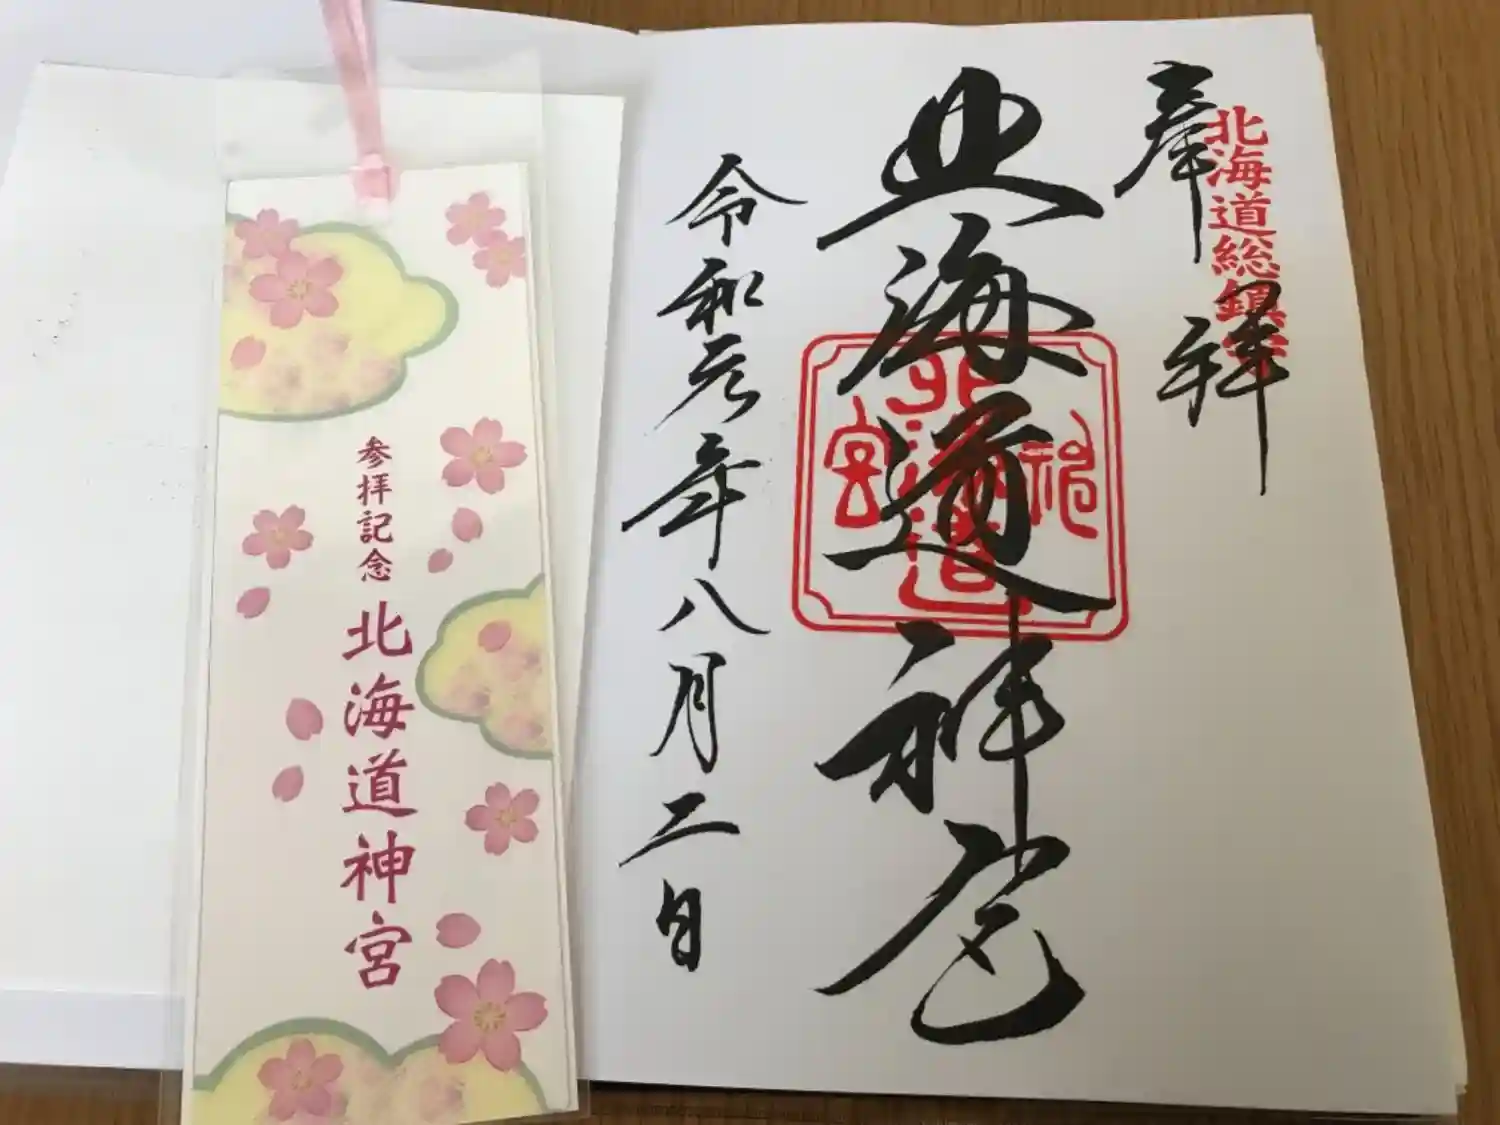 奉拝
北海道総鎮守
北海道神宮
北海道神宮
令和元年八月二日
参拝記念 北海道神宮